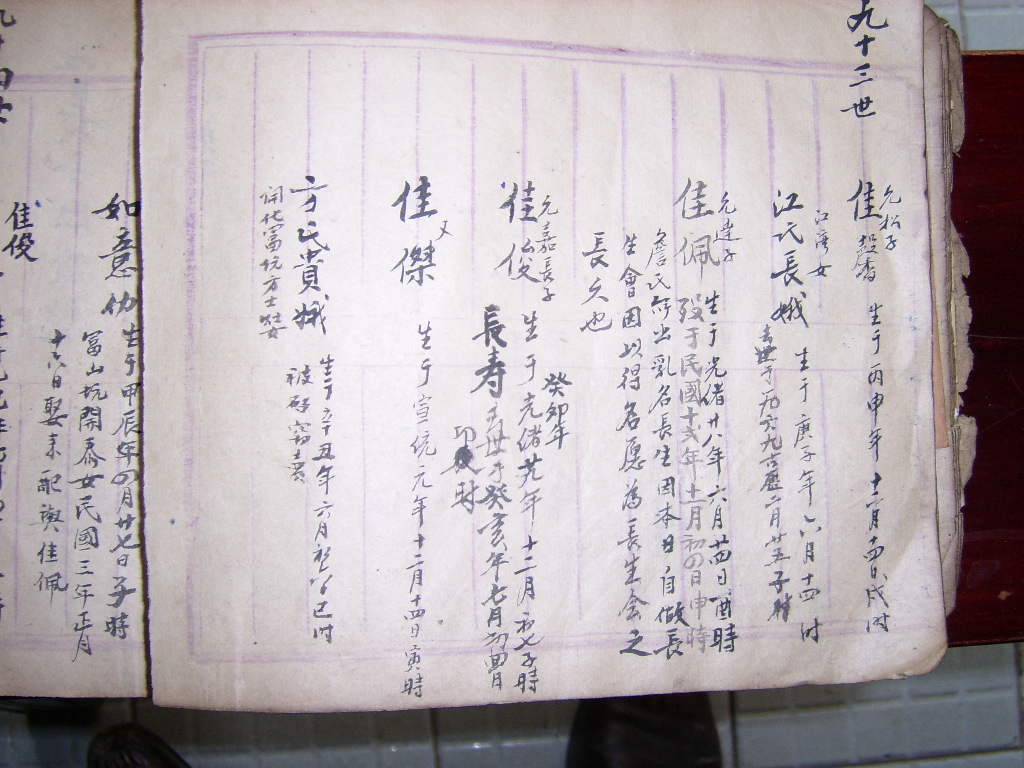 九十三世
元松子
佳
生于丙申年十二月十四日戌时
江湾女
江氏長娥 生于庚子年六月十四 时
去世于一九六九古歷二月廿五子时
元達子
佳佩 生于光绪廿八年六月廿四日酉時
殁于民國十六年十一月初四日申時
詹氏所出乳名長生因本日自做長
生會因以得名愿為長生会之
長久也
元嘉長子
佳俊 生于光緒廿九年十二月初七子時
癸卯年
長寿 去世于癸亥年七月初四日
卯时
又
佳傑 生于宣統元年十二月十四日寅時
方氏貴娥 生于辛丑年六月初六巳时
開化富坑方士
九十四世
如意 生于甲辰年四月廿七日子時
富山坑開泰女民國三年正月
十六日娶来配與佳佩
佳俊